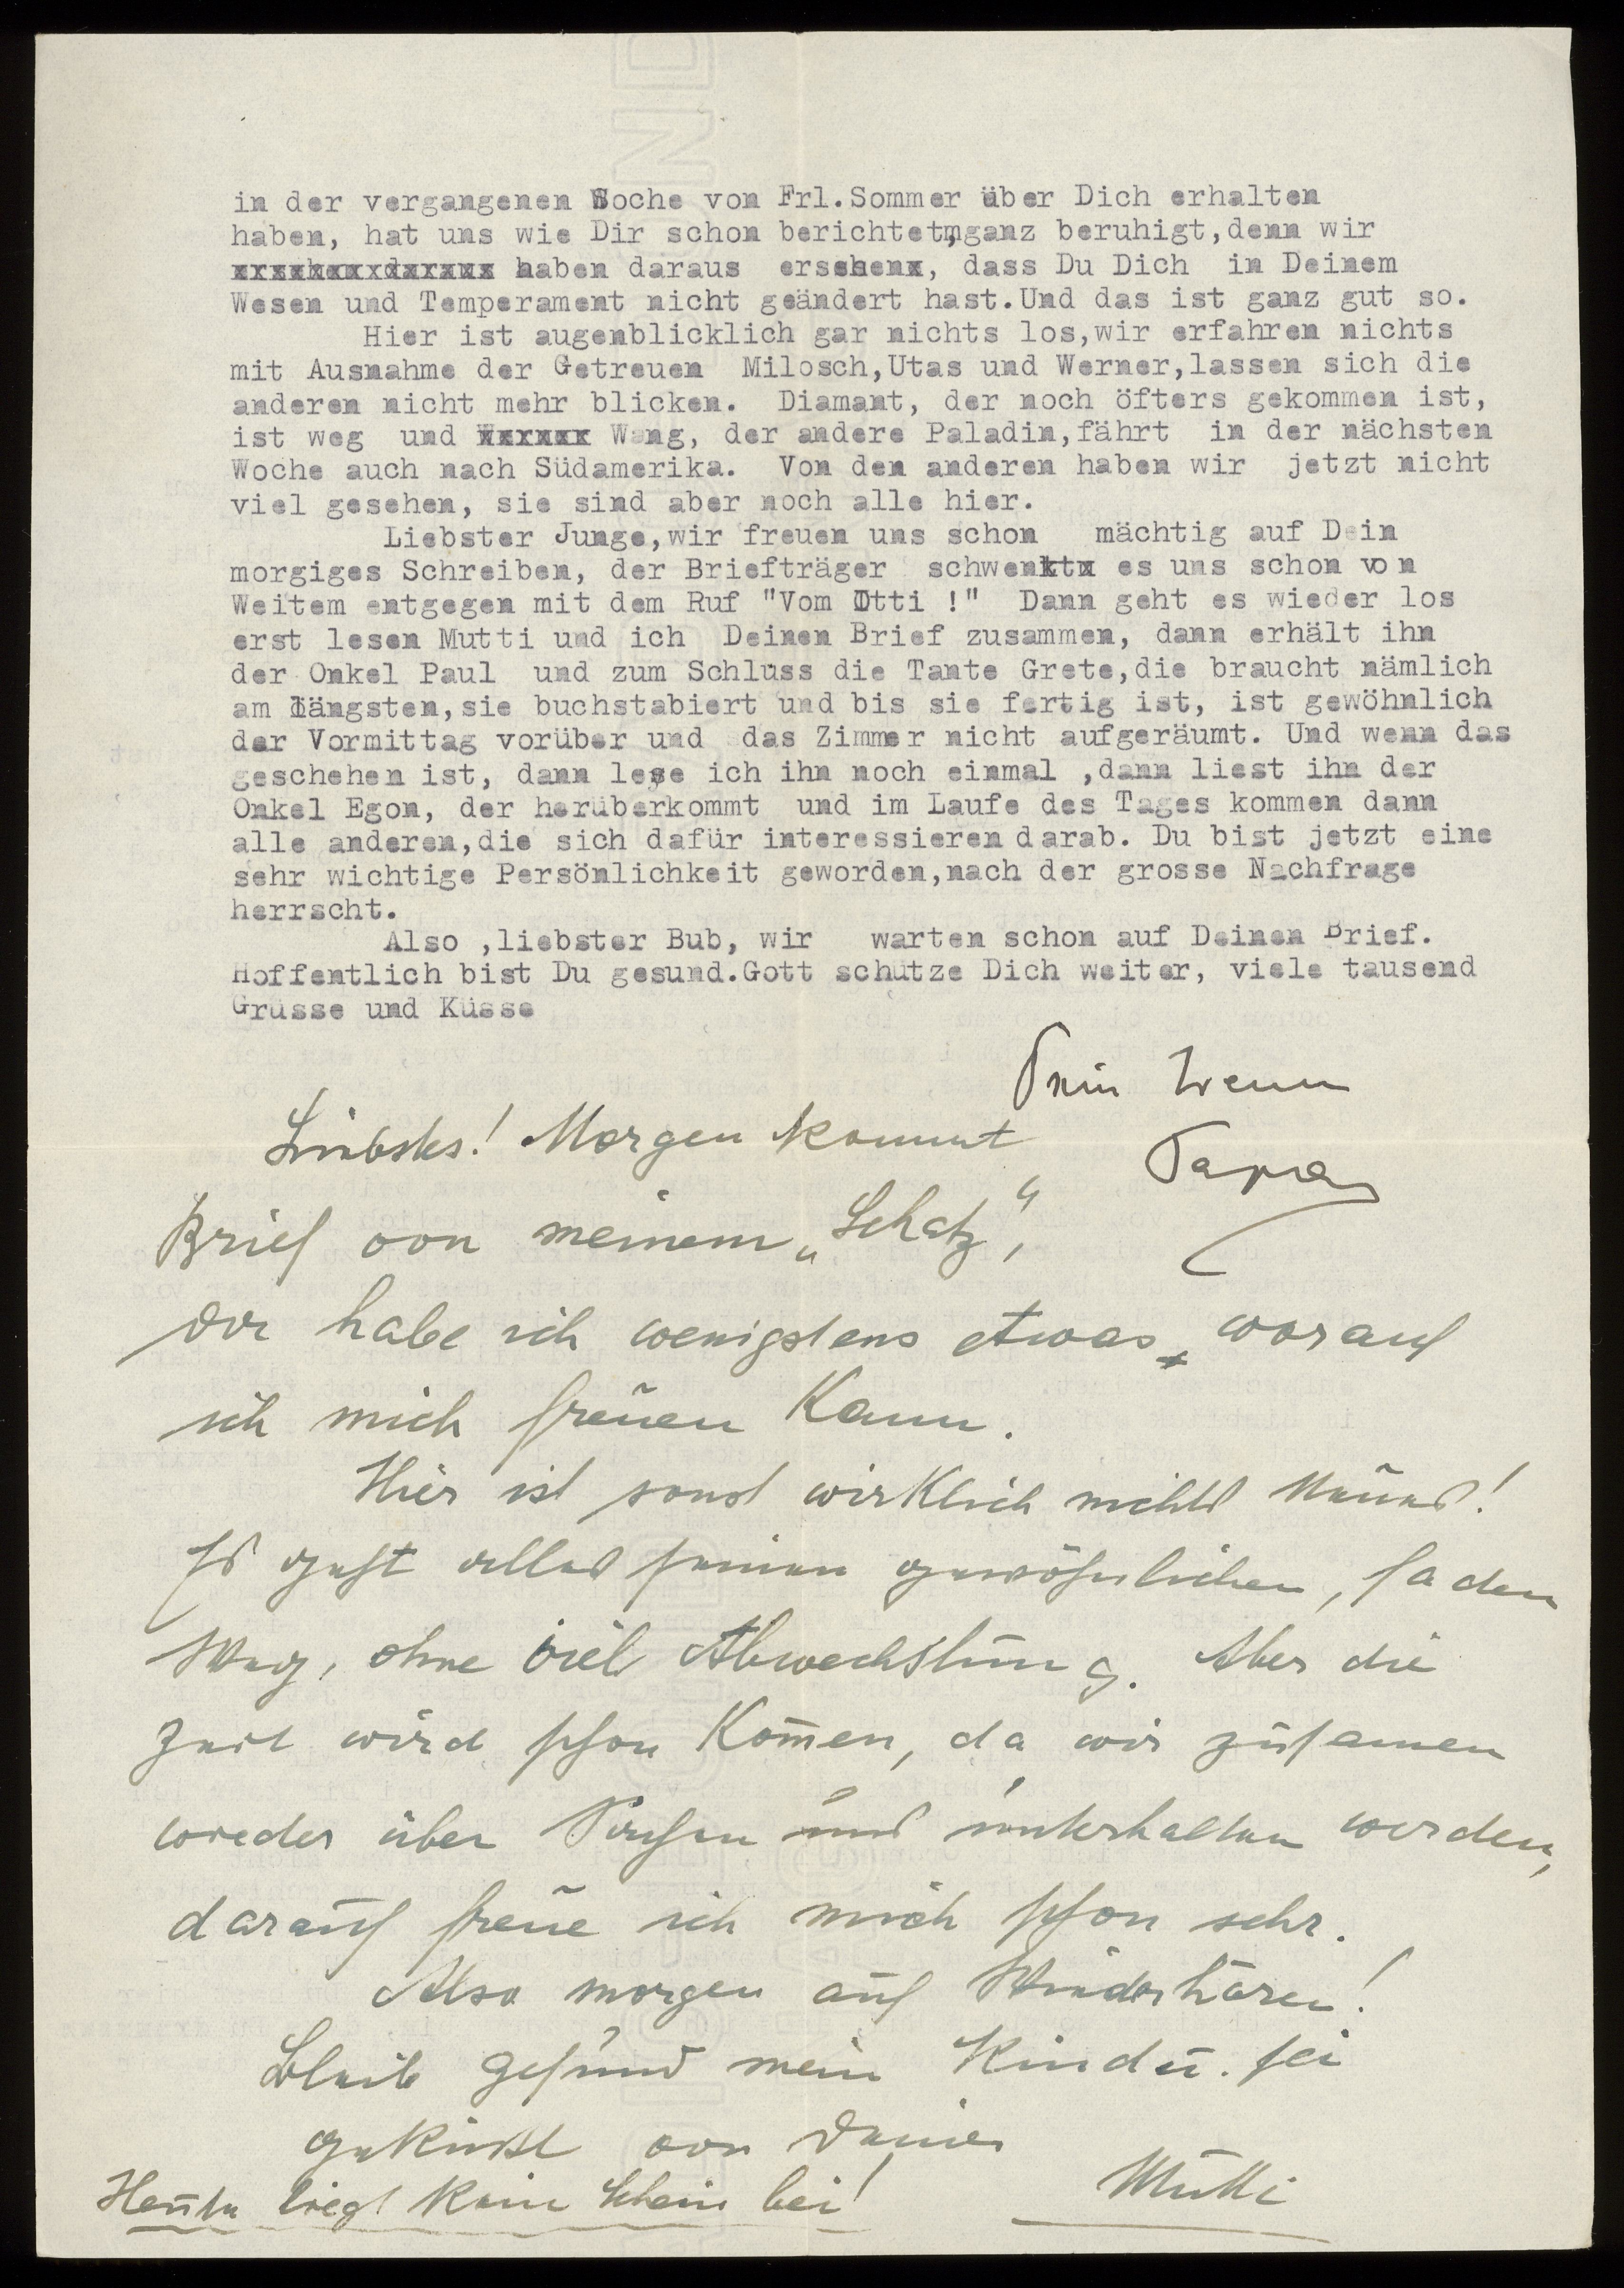 in der vergangenen Woche von Frl.Sommer über Dich erhalten
haben, hat uns wie Dir schon berichtet,ganz beruhigt,denn wir
haben daraus ersehen, dass Du Dich in Deinem
Wesen und Temperament nicht geändert hast.Und das ist ganz gut so.
Hier ist augenblicklich gar nichts los,wir erfahren nichts
mit Ausnahme der Getreuen Milosch,Utas und Werner,lassen sich die
anderen nicht mehr blicken. Diamant, der noch öfters gekommen ist,
ist weg und Wang, der andere Paladin,fährt in der nächsten
Woche auch nach Südamerika. Von den anderen haben wir jetzt nicht
viel gesehen, sie sind aber noch alle hier.
Liebster Junge,wir freuen uns schon mächtig auf Dein
morgiges Schreiben, der Briefträger schwenkt es uns schon von
Weitem entgegen mit dem Ruf "Vom Otti !" Dann geht es wieder los
erst lesen Mutti und ich Deinen Brief zusammen, dann erhält ihn
der Onkel Paul und zum Schluss die Tante Grete,die braucht nämlich
am längsten,sie buchstabiert und bis sie fertig ist, ist gewöhnlich
der Vormittag vorüber und das Zimmer nicht aufgeräumt. Und wenn das
geschehen ist, dann lese ich ihn noch einmal ,dann liest ihn der
Onkel Egon, der herüberkommt und im Laufe des Tages kommen dann
alle anderen,die sich dafür interessieren darab. Du bist jetzt eine
sehr wichtige Persönlichkeit geworden,nach der grosse Nachfrage
herrscht.
Also ,liebster Bub, wir warten schon auf Deinen Brief.
Hoffentlich bist Du gesund.Gott schütze Dich weiter, viele tausend
Grüsse und Küsse
Dein
Papa
Liebstes! Morgen kommt
Brief von meinem „Schatz",
da habe ich wenigstens etwas, worauf
ich mich freuen kann.
Hier ist sonst wirklich nichts Neues!
Es geht alles seinen gewöhnlichen, faden
Weg, ohne viel Abwechslung. Aber die
Zeit wird schon kom̄en, da wir zusammen
wieder über uns unterhalten werden,
darauf freue ich mich schon sehr.
Also morgen auf Wiederhören!
Bleib gesund mein Kind u. sei
geküsst von Deiner
Mutti
Heute liegt kein Schein bei!